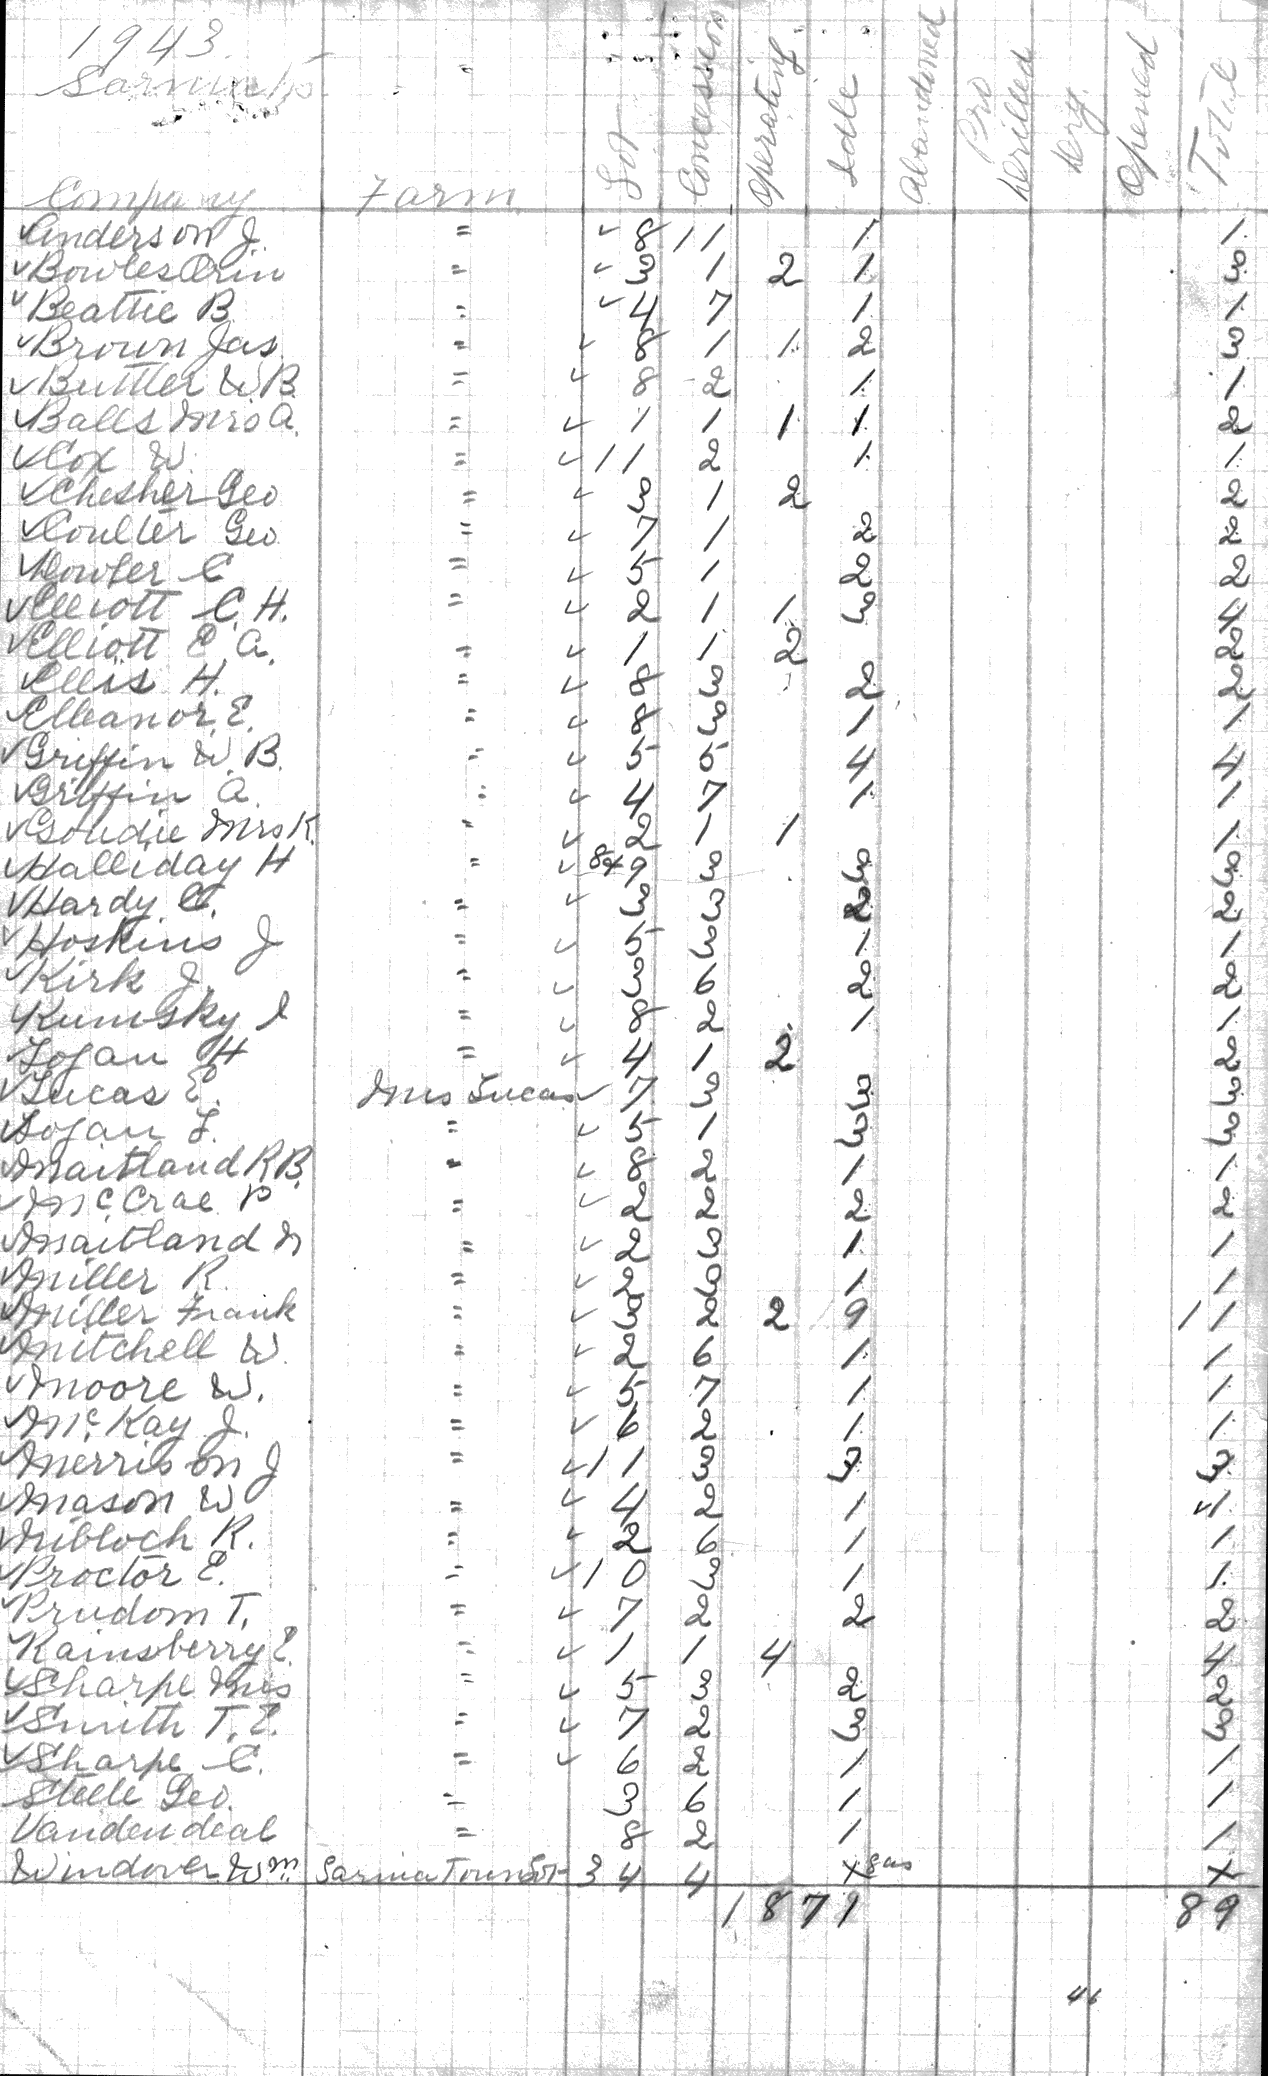 1943.
Sarnia Tp.
Company Farm Lot Concession Operating Idle Abandoned Pro Drilled Dry. Opened Total
✓Anderson J. " ✓ 8 11 1 1
✓Bowles Orin " ✓ 3 1 2 1 3
✓Beattie B. " ✓ 4 7 1 1
✓Brown Jas. " ✓ 8 1 1 2 3
✓Buttler W.B. " ✓ 8 2 1 1
✓Balls Mrs A. " ✓ 1 1 1 1 2
✓Cox W. " ✓ 11 2 1 1
✓Chesher Geo " ✓ 3 1 2 2
✓Coulter Geo " ✓ 7 1 2 2
✓Dowler C " ✓ 5 1 2 2
✓Elliott C.H. " ✓ 2 1 1 3 4
✓Elliott E A. " ✓ 1 1 2 2
✓Ellis H. " ✓ 8 3 2 2
Elleanor E. " ✓ 8 3 1 1
✓Griffin W.B. " ✓ 5 5 4 4
✓Griffin A. " ✓ 4 7 1 1
✓Goudie Mrs K. " ✓ 2 1 1 1
✓Halliday H " ✓ 8+9 3 3 3
✓Hardy C. " ✓ 3 3 2 2
✓Hoskins J " ✓ 5 3 1 1
✓Kirk J. " ✓ 3 6 2 2
Kumsky I " ✓ 8 2 1 1
Logan H " ✓ 4 1 2 2
✓Lucas E. Mrs Lucas ✓ 7 3 3 3
Logan L. " ✓ 5 1 3 3
✓Maitland R.B. " ✓ 8 2 1 1
✓McCrae P " ✓ 2 2 2 2
✓Maitland N " ✓ 2 3 1 1
✓Miller R. " ✓ 2 3 1 1
✓Miller Frank " ✓ 3 2 2 9 11
✓Mitchell W. " ✓ 2 6 1 1
✓Moore W. " ✓ 5 7 1 1
✓McKay J. " ✓ 6 2 1 1
✓Merrison J " ✓ 11 3 3 3
✓Mason W " ✓ 4 2 1 ✓1
✓Nibloch R. " ✓ 2 6 1 1
✓Proctor E. " ✓ 10 3 1 1
✓Prudom T. " ✓ 7 2 2 2
✓Rainsberry E. " ✓ 1 1 4 4
✓Sharpe Mrs " ✓ 5 3 2 2
✓Smith T.E. " ✓ 7 2 3 3
✓Sharpe C. " ✓ 6 2 1 1
Steele Geo. " 3 6 1 1
Vandendeal " 8 2 1 1
Windover Wm. Sarnia Town Lot 34 4 x gas x
18 71 89
46